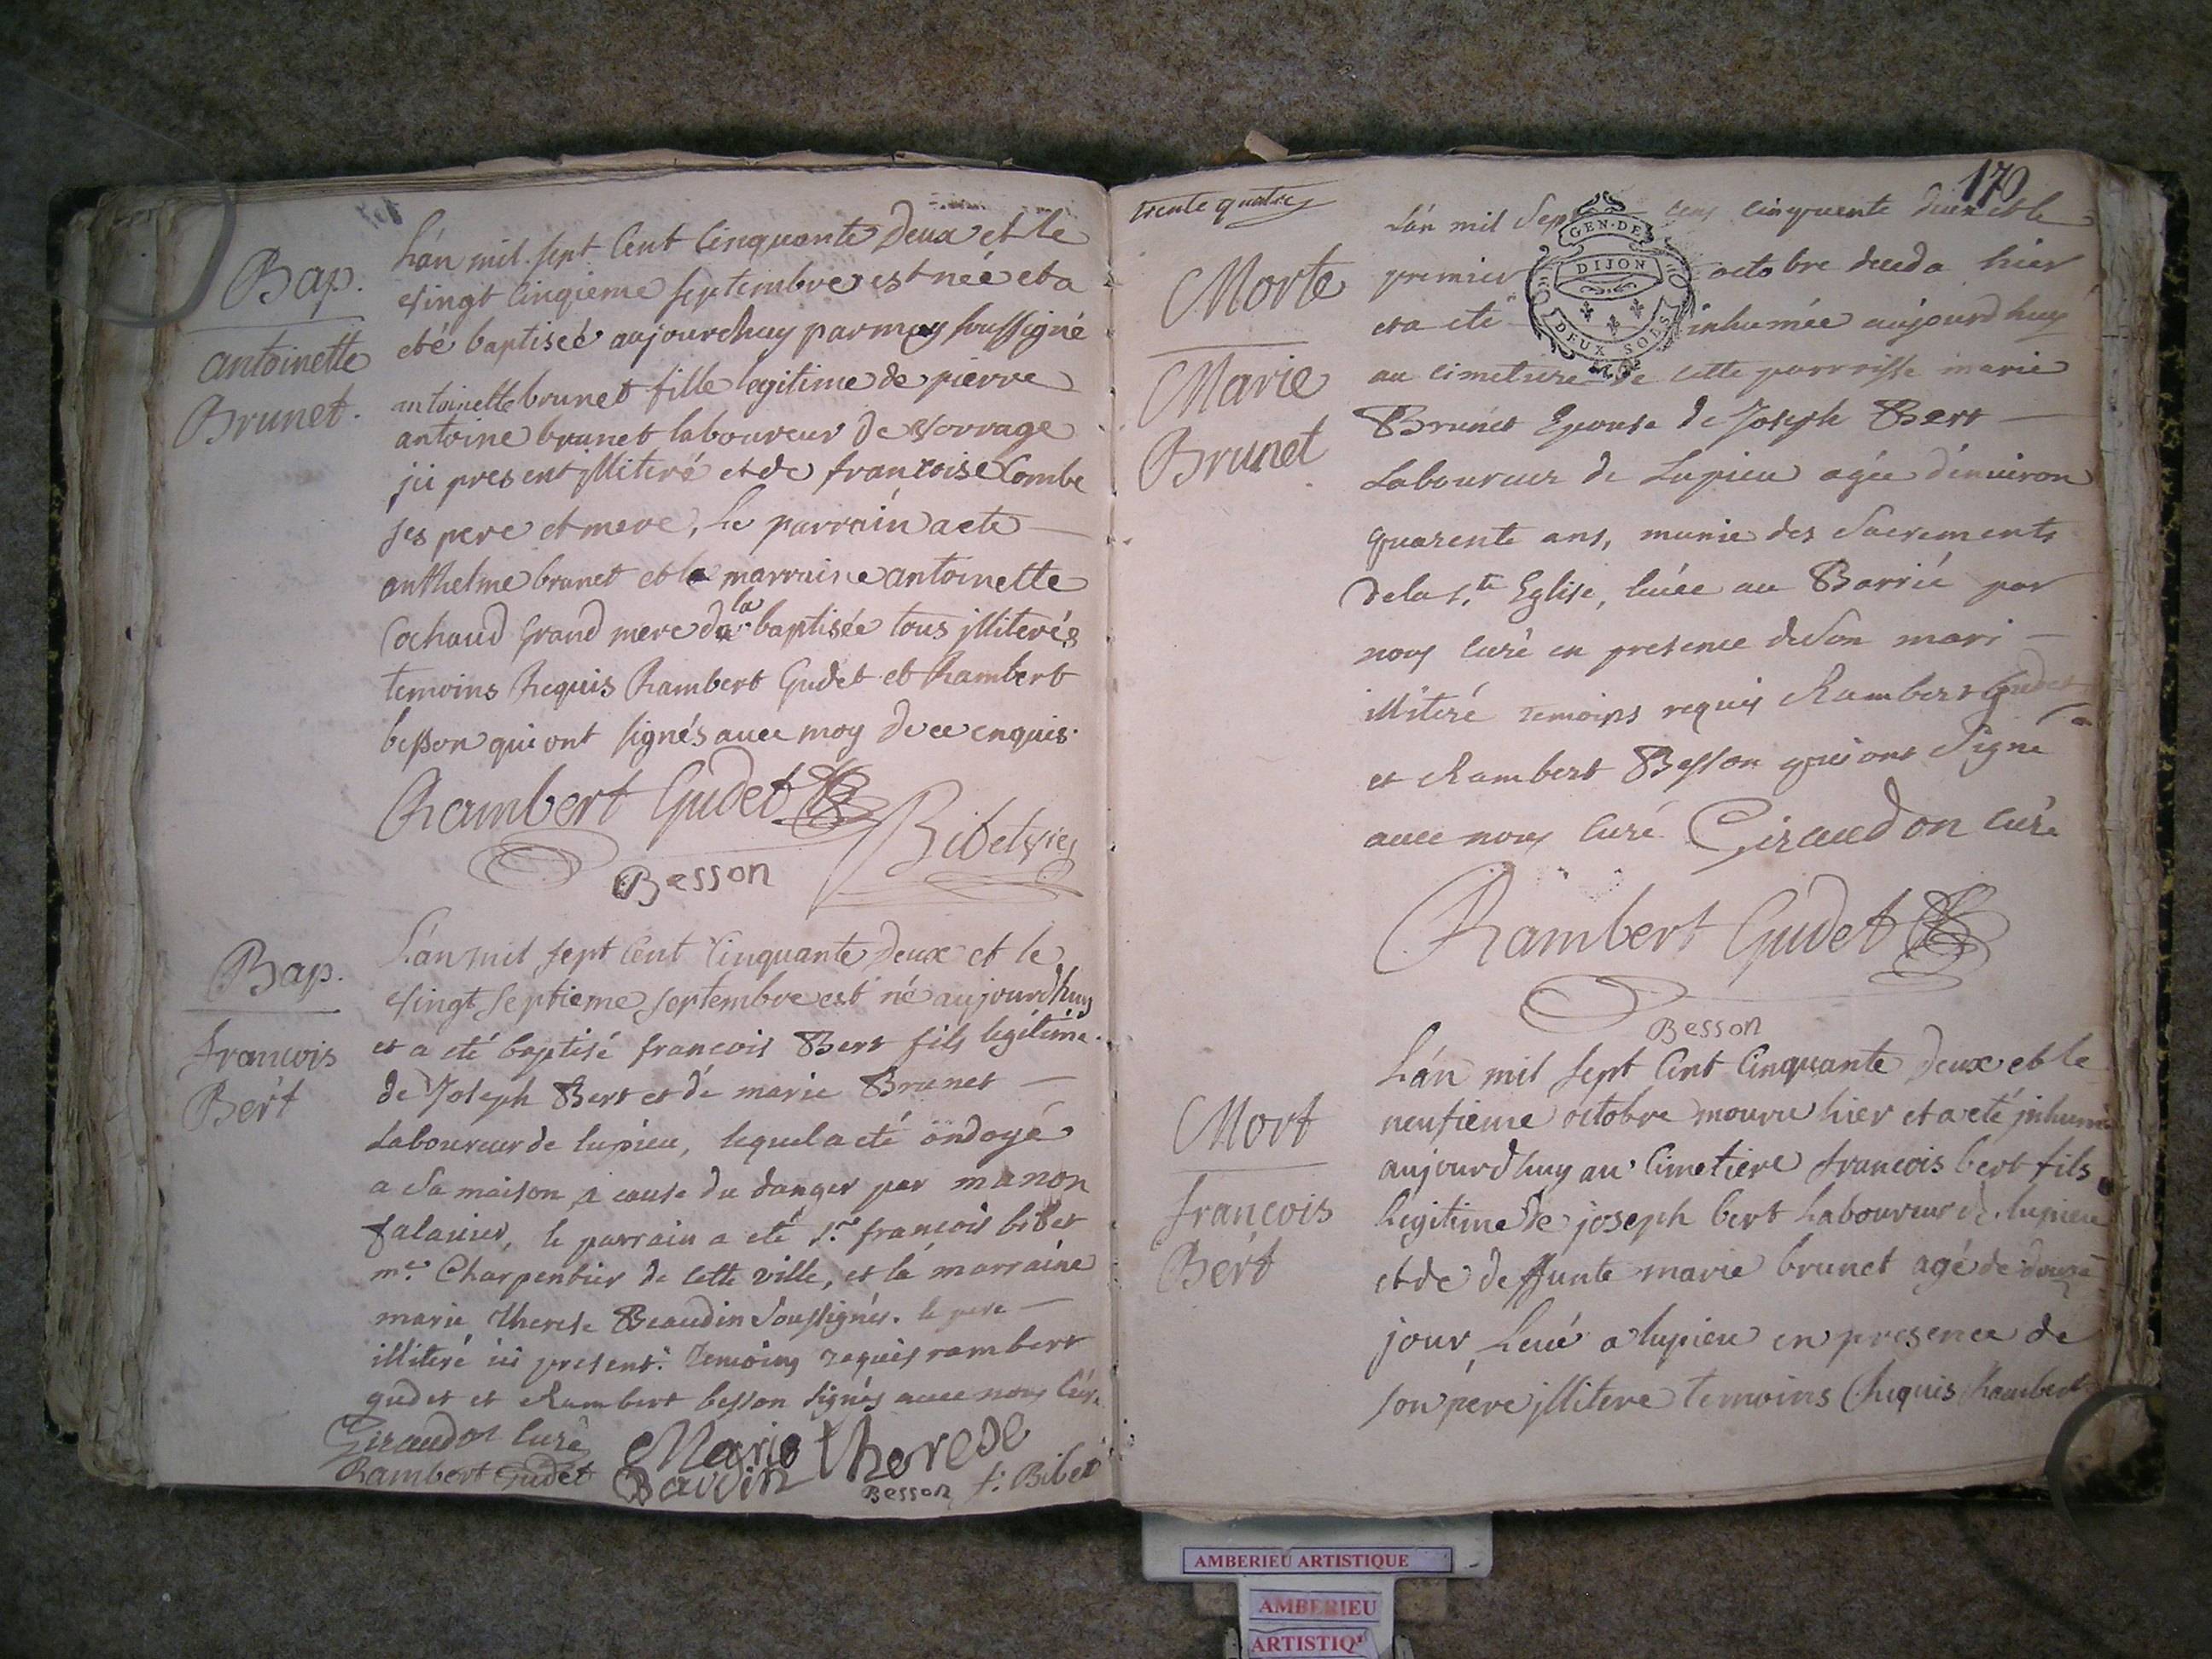 Bap.
antoinette
Brunet.
L'án mil sept Cent Cinquante Deux et le
vingt Cinqieme septembre est neé et a
eté baptiseé aujourdhuy par moy soussigné
antoinette brunet fille legitime de pierre
antoine brunet laboureur de vorrage
jci present jlliteré et de francoise Combe
ses pere et mere, Le parrain a eté
anthelme brunet et la marraine antoinette
Cochaud grand mere de la baptisée tous jlliterés
temoins Requis Rambert Gudet et Rambert
besson qui ont signés avec moy de ce enquis.
Rambert Gudet
Besson
Ribet vic
Bap.
francois
Bert
L'an mil sept Cent Cinquante Deux et le
vingt septieme septembre est né aujourdhuy
et a eté baptisé francois Bert fils legitime
de Joseph Bert et de marie Brunet
Laboureur de lupieu, lequel a eté ondoyé
a sa maison a cause du danger par manon
le parrain a eté s.r francois bibet
m.e Charpentier de cette ville, et la marraine
marie therese Beaudin soussignés. le pere
illiteré ici present. temoins requis rambert
gudet et Rambert besson signés avec nous Curé
Giraudon Curé
Rambert Gudet
Marie therese
Baudin
Besson
f: Bibet
trente quatre
170
GEN. DE
DIJON
DEUX SOLS
Morte
Marie
Brunet
L'án mil Sept cens cinquante deux et le
premier octobre deceda hier
et a eté inhumée aujourdhuy
au cimetiere de cette parroisse marie
Brunet Epouse de Joseph Bert
Laboureur de Lupieu agée d'environ
quarente ans, munie des Sacrements
de la s.te Eglise, levée au Barrié par
nous Curé en presence de son mari
illiteré temoins requis Rambert Gudet
et Rambert Besson qui ont Signé
avec nous Curé Giraudon Curé
Rambert Gudet
Besson
Mort
francois
Bert
L'án mil sept Cent Cinquante Deux et le
neufieme octobre mouru hier et a eté jnhumé
aujourdhuy au Cimetiere francois bert fils
legitime de joseph bert Laboureur de lupieu
et de deffunte marie brunet agé de douze
jour, Levé a lupieu en presence de
son pere jllitere temoins Requis Rambert
AMBERIEU ARTISTIQUE
AMBERIEU
ARTISTIQ